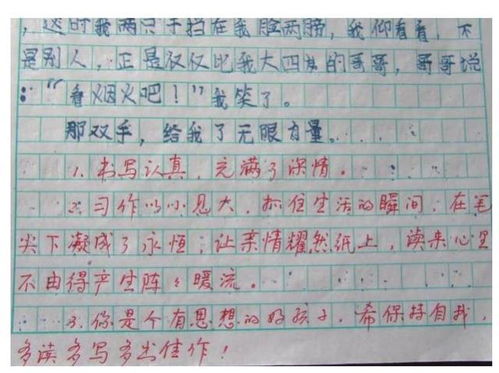 ，这时我两只手挡在我脸两膀，我仰着看，不
是别人，正是仅仅比我大四岁的哥哥，哥哥说
：“看烟火吧！”我笑了。
那双手，给我了无限力量。
1. 书写认真，充满了深情。
2. 习作以小见大，抓住生活的瞬间，在笔
尖下凝成了永恒；让亲情耀然纸上，读来心里
不由得产生阵々暖流。
3. 你是个有思想的好孩子，希保持自我，
多读多写多出佳作！